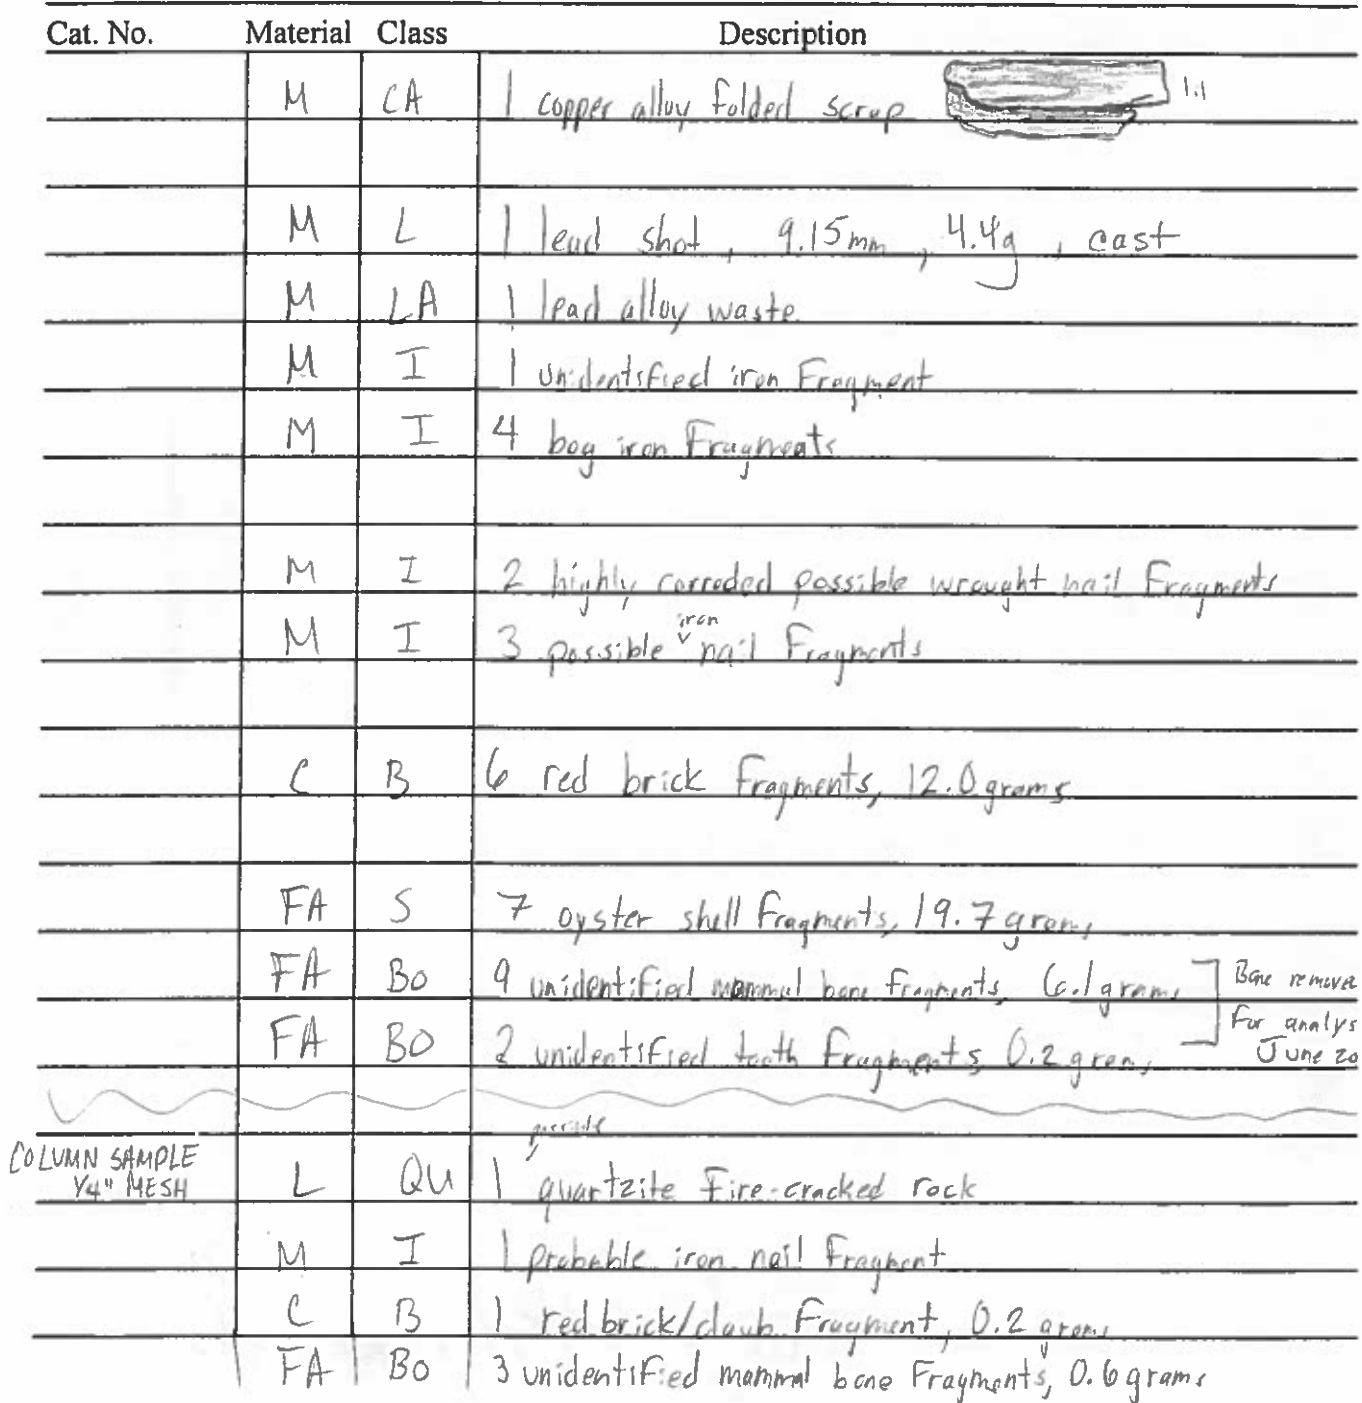 Cat. No. Material Class Description
M CA 1 copper alloy folded scrap 1:1
M L 1 lead shot, 9.15mm, 4.4g, cast
M LA 1 lead alloy waste
M I 1 unidentified iron Fragment
M I 4 bog iron Fragments
M I 2 highly corroded possible wrought nail Fragments
iron
M I 3 possible nail Fragments
C B 6 red brick fragments, 12.0 grams
FA S 7 oyster shell fragments, 19.7 grams
FA Bo 9 unidentified mammal bone fragments, 6.1 grams Bone remove
For analys
FA BO 2 unidentified tooth fragments 0.2 grams June 20
possible
COLUMN SAMPLE
1/4" MESH L QU 1 quartzite Fire-cracked rock
M I 1 probable iron nail Fragment
C B 1 red brick/daub Fragment, 0.2 grams
FA Bo 3 unidentified mammal bone Fragments, 0.6 grams